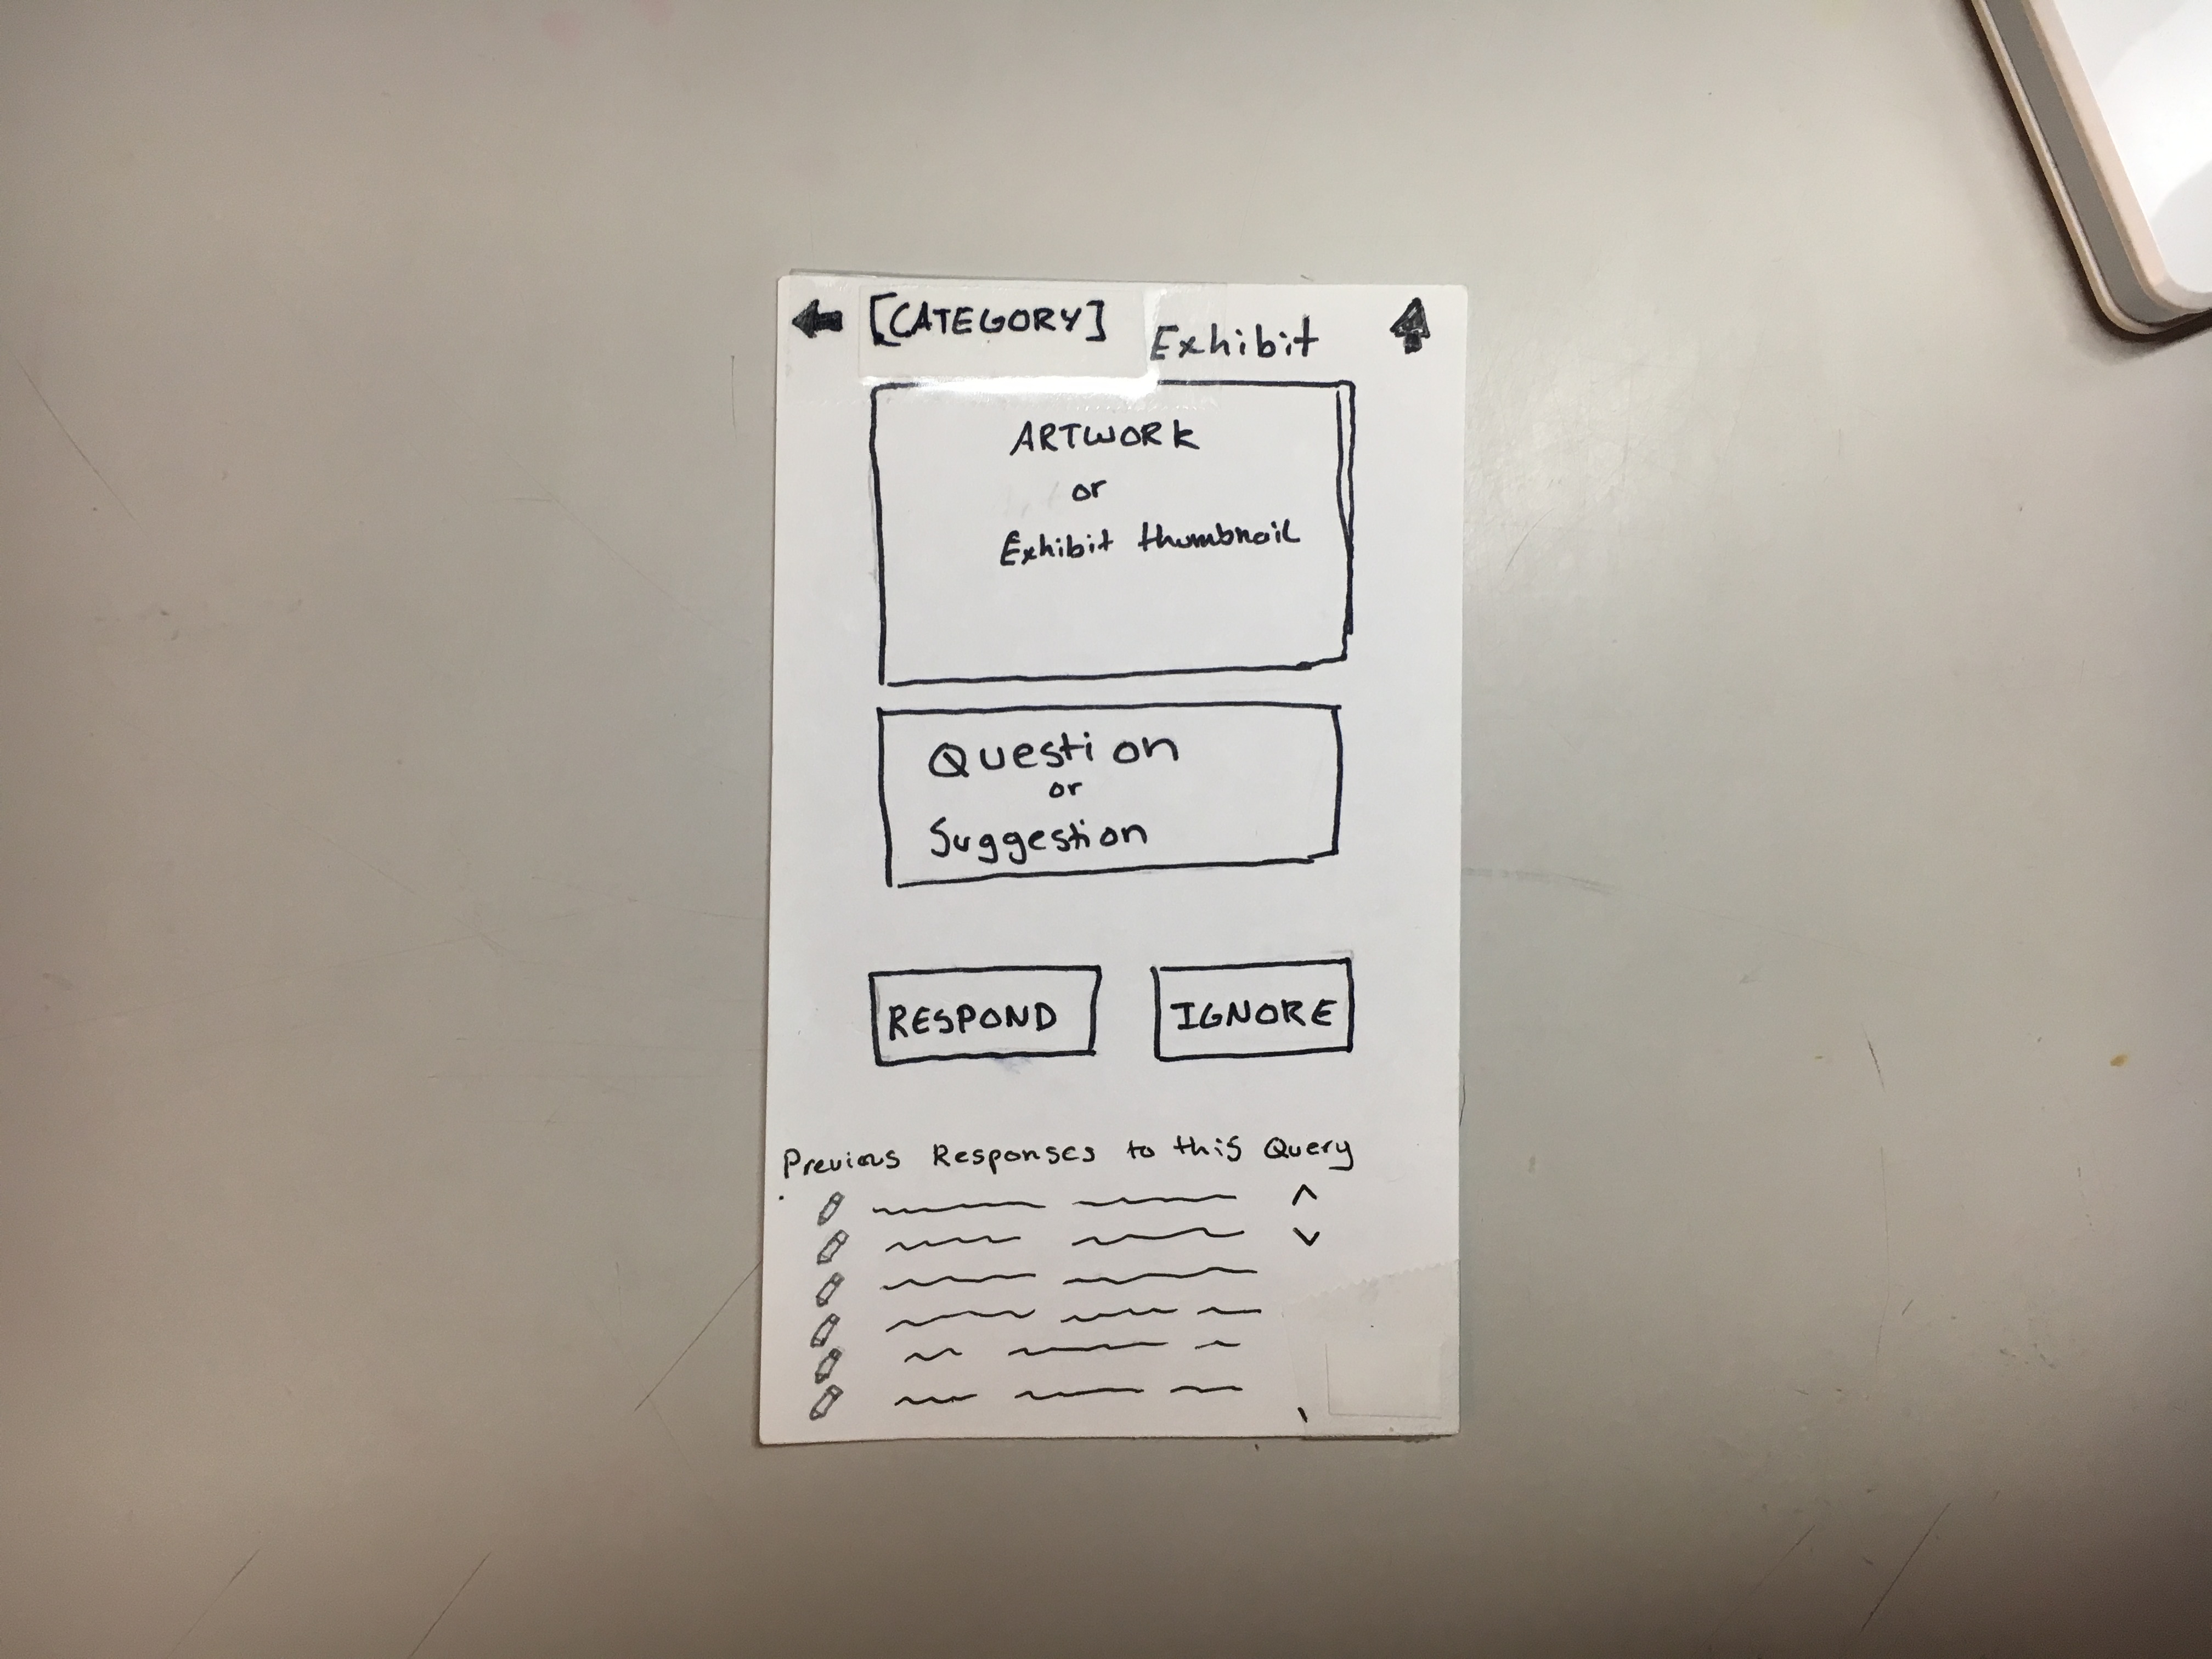 [CATEGORY] Exhibit
ARTWORK
or
Exhibit thumbnail
Question
or
Suggestion
RESPOND IGNORE
Previous Responses to this Query